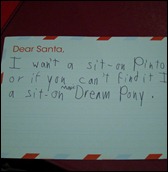 Dear Santa,
I want a sit-on Pinto
or if you can't find it I
a sit-on Dream Pony.